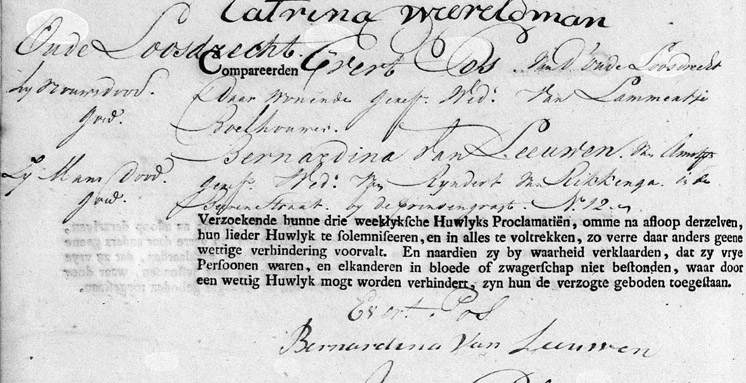 Catrina Wereldman
Oude Loosdrecht. Compareerden Evert Pos van d'oude Loosdrecht
zy vrouws dood. daar woonende geref. Wedr. van Lammetje
goed. Boelhouwer.
Bernardina van Leeuwen. van Amst
zy Mans dood geref. Wede. van Ryndert van Rikkenga in de
goed. straat. by de prinsengragt. No. 12.
Verzoekende hunne drie weeklyksche Huwlyks Proclamatiën, omme na afloop derzelven,
hun lieder Huwlyk te solemniseeren, en in alles te voltrekken, zo verre daar anders geene
wettige verhindering voorvalt. En naardien zy by waarheid verklaarden, dat zy vrye
Persoonen waren, en elkanderen in bloede of zwagerschap niet bestonden, waar door
een wettig Huwlyk mogt worden verhindert, zyn hun de verzogte geboden toegestaan.
Evert Pos
Bernardena Van Leeuwen